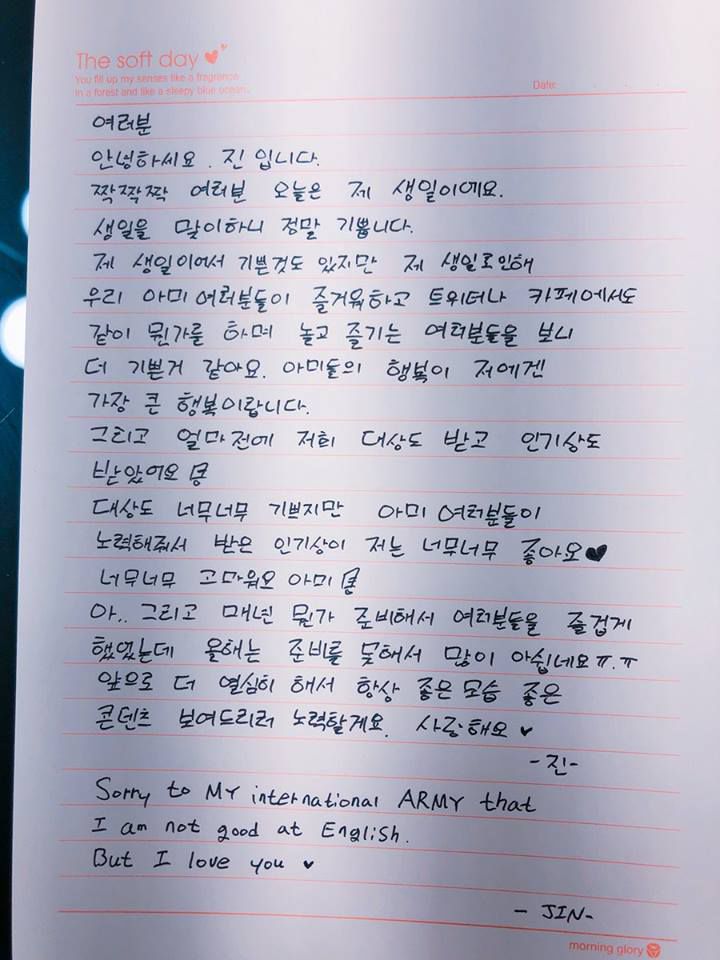 The soft day
You fill up my senses like a fragrance
In a forest and like a sleepy blue ocean.
Date:
여러분
안녕하세요. 진 입니다.
짝짝짝 여러분 오늘은 제 생일이에요.
생일을 맞이하니 정말 기쁩니다.
제 생일이에서 기쁜것도 있지만 제 생일로인해
우리 아미여러분들이 즐거워하고 트위터나 카페에서도
같이 뭔가를 하며 놀고 즐기는 여러분들을 보니
더 기쁜거 같아요. 아미들의 행복이 저에겐
가장 큰 행복이랍니다.
그리고 얼마전에 저희 대상도 받고 인기상도
받았어요
대상도 너무너무 기쁘지만 아미 여러분들이
노력해줘서 받은 인기상이 저는 너무너무 좋아요♥
너무너무 고마워요 아미
아.. 그리고 매년 뭔가 준비해서 여러분들을 즐겁게
했었는데 올해는 준비를 못해서 많이 아쉽네요ㅠ.ㅠ
앞으로 더 열심히 해서 항상 좋은모습 좋은
콘텐츠 보여드리려 노력할게요. 사랑해요 ♥
-진-
Sorry to MY international ARMY that
I am not good at English.
But I love you ♥
- JIN-
morning glory